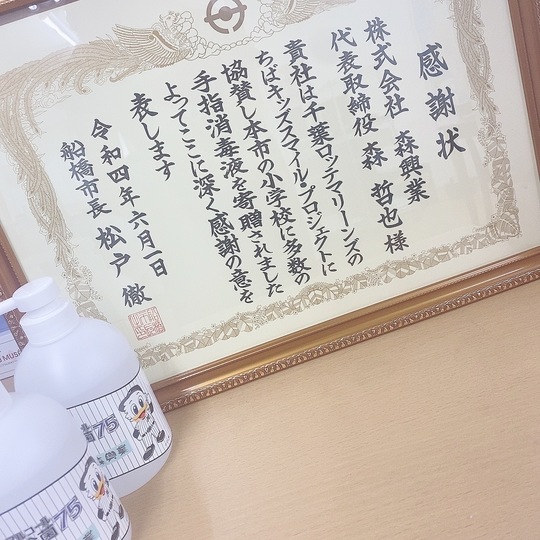 感謝状
株式会社 森興業
代表取締役 森 哲也 様
貴社は千葉ロッテマリーンズの
ちばキッズスマイル・プロジェクトに
協賛し本市の小学校に多数の
手指消毒液を寄贈されました
よってここに深く感謝の意を
表します
令和四年六月一日
船橋市長 松戸 徹
75
アルコール
75